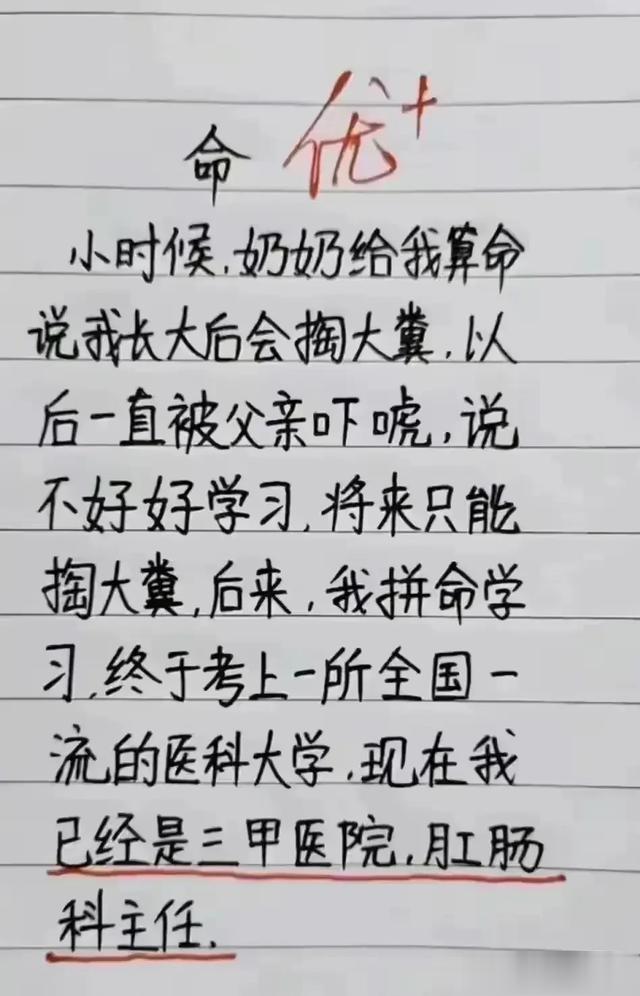 命 优+
小时候,奶奶给我算命
说我长大后会掏大粪,以
后一直被父亲吓唬,说
不好好学习,将来只能
掏大粪,后来,我拼命学
习,终于考上一所全国一
流的医科大学,现在我
已经是三甲医院,肛肠
科主任.